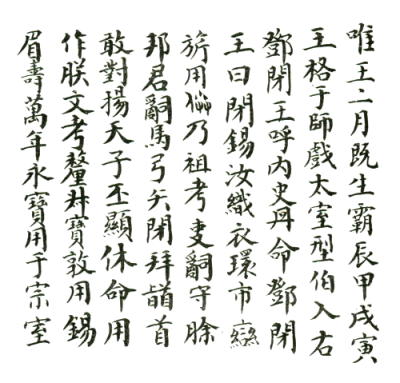 唯王二月既生霸辰甲戌寅
王格于師戲太室型伯入右
鄧閉王呼內史丹命鄧閉
王曰閉錫汝織衣環市䜌
旂用乃祖考叓嗣守
邦君嗣馬弓矢閉拜䭫首
敢對揚天子丕顯休命用
作朕文考釐叔寶敦用錫
眉壽萬年永寶用于宗室